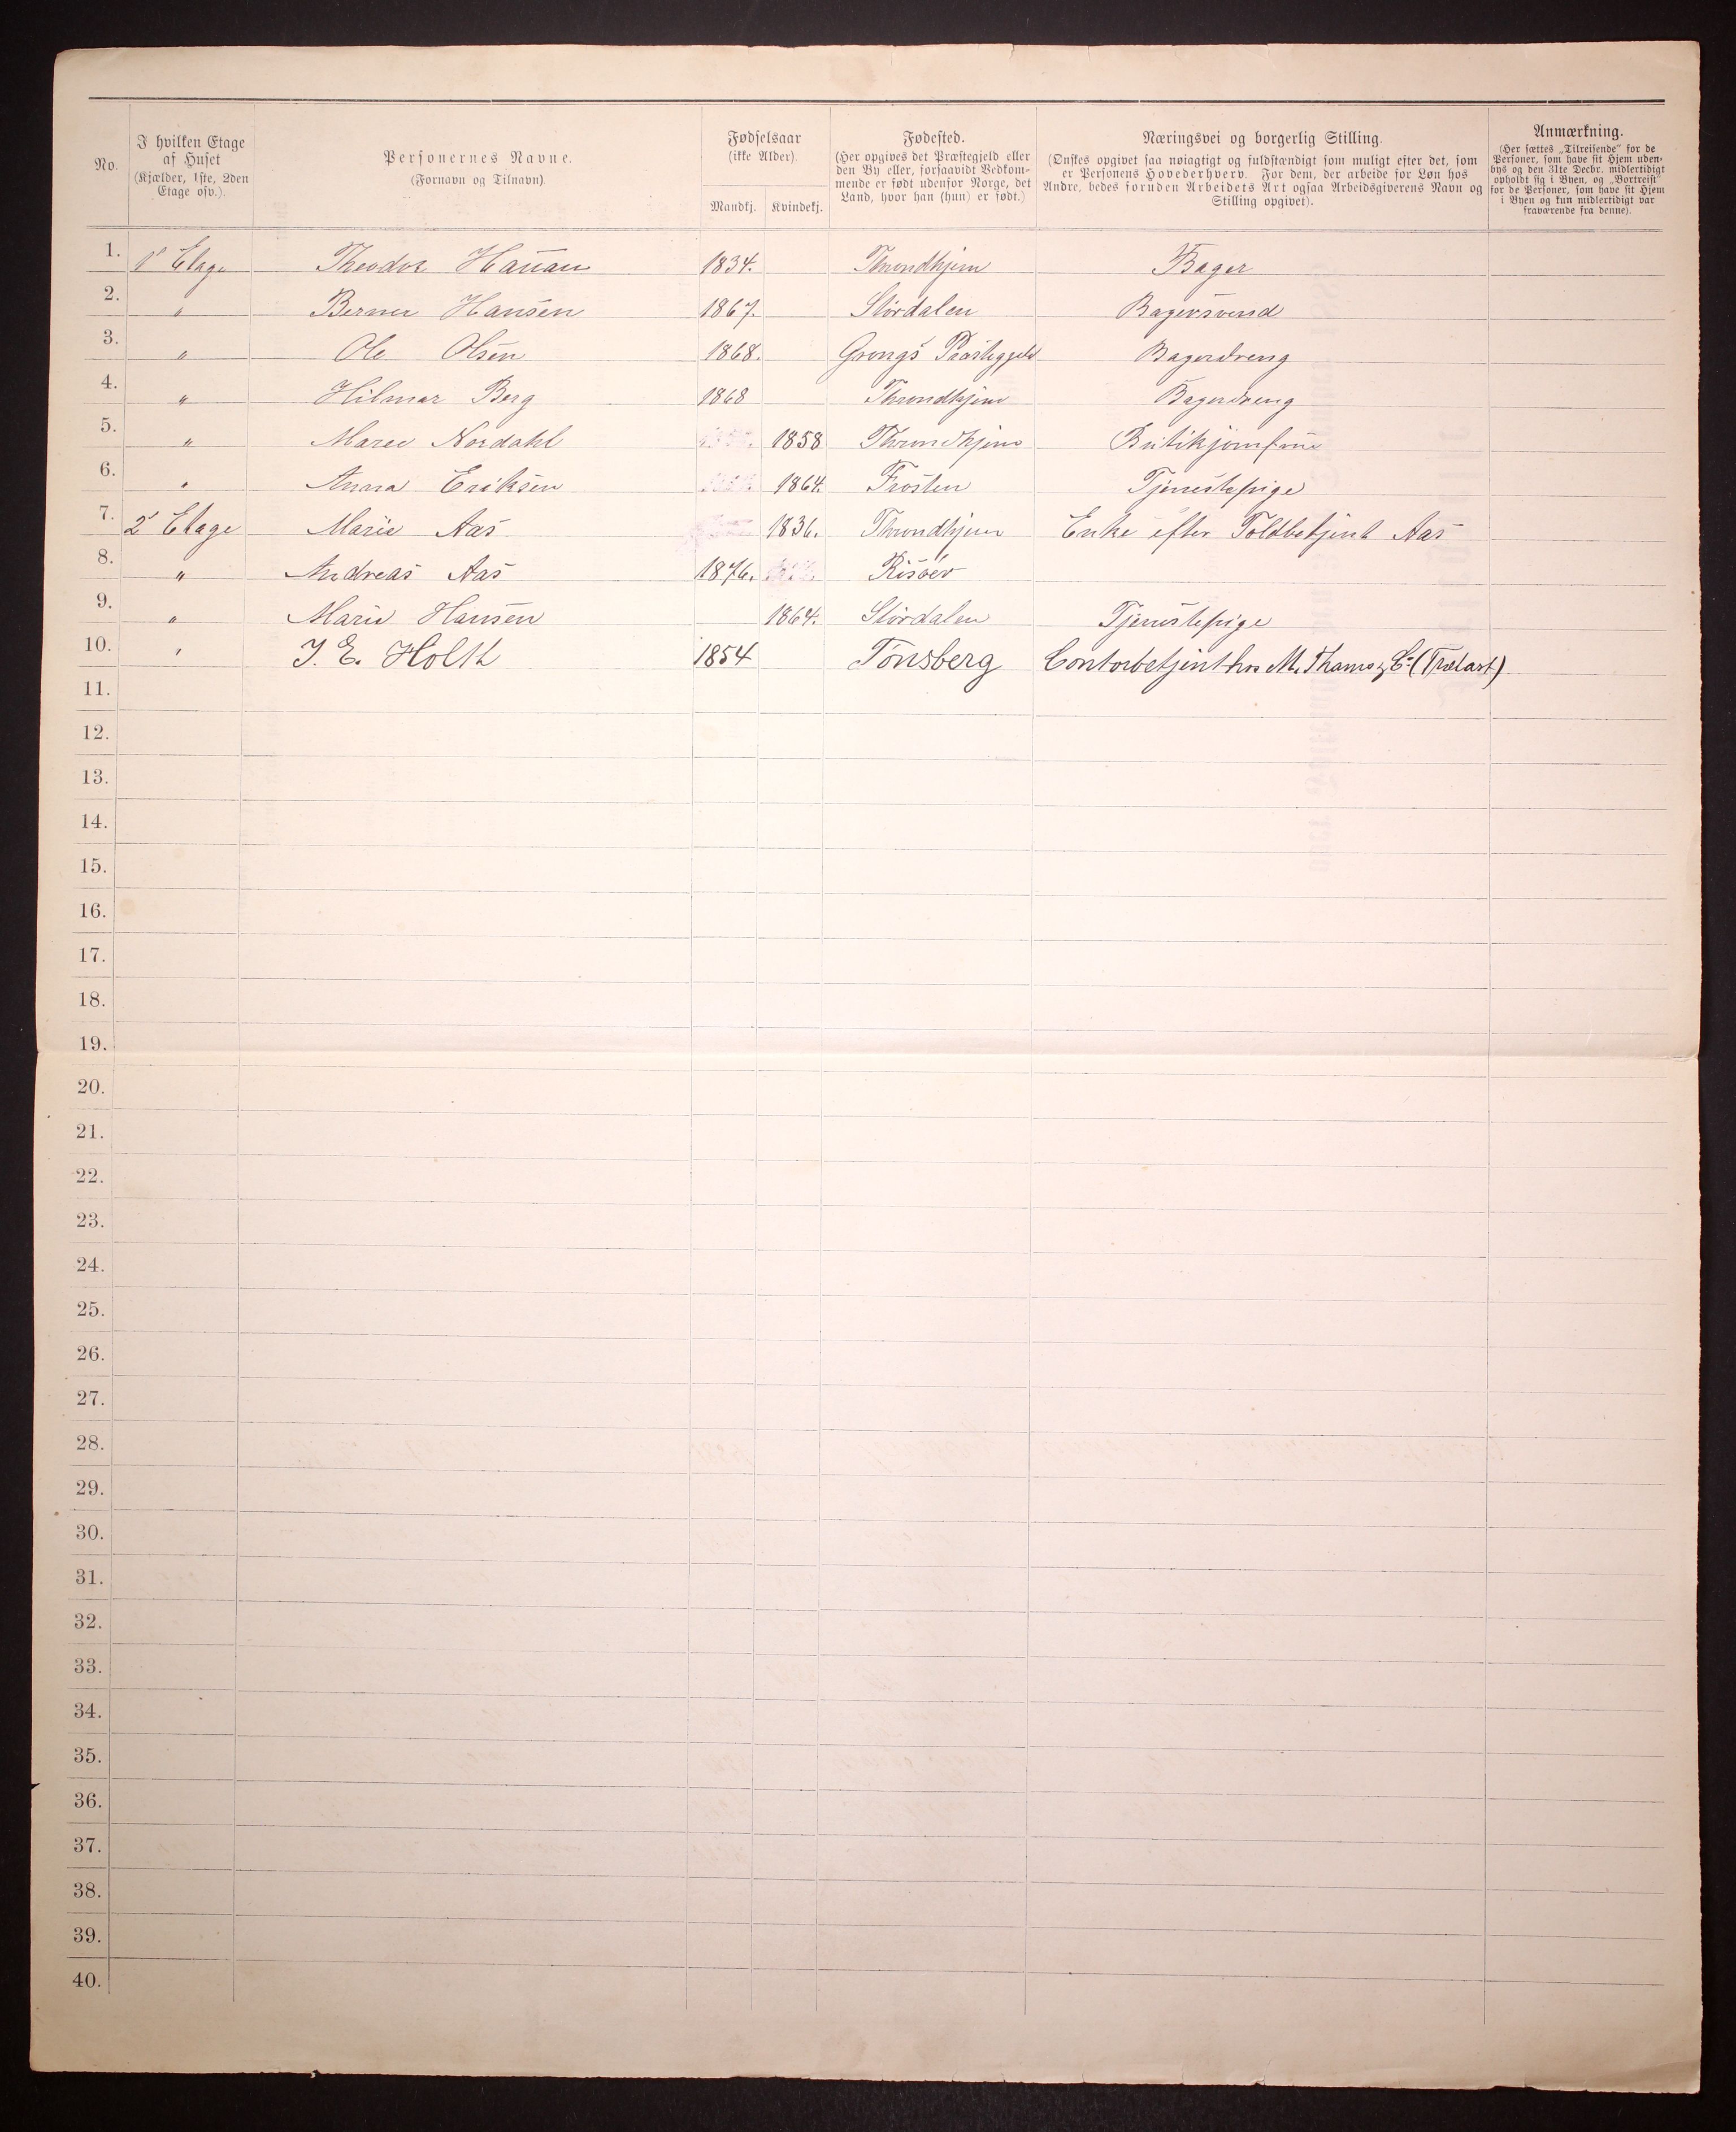 No.
I hvilken Etage af Huset (Kjælder, 1ste, 2den Etage osv.).
Personernes Navne. (Fornavn og Tilnavn).
Fødselsaar (ikke Alder).
Mandkj. Kvindekj.
Fødested. (Her opgives det Præstegjeld eller den By eller, forsaavidt Vedkommende er født udenfor Norge, det Land, hvor han (hun) er født.)
Næringsvei og borgerlig Stilling. (Ønskes opgivet saa nøiagtigt og fuldstændigt som muligt efter det, som er Personens Hovederhverv. For dem, der arbeide for Løn hos Andre, bedes foruden Arbeidets Art ogsaa Arbeidsgiverens Navn og Stilling opgivet).
Anmærkning. (Her sættes „Tilreisende" for de Personer, som have sit Hjem udenbys og den 31te Decbr. midlertidigt opholdt sig i Byen, og „Bortreist" for de Personer, som have sit Hjem i Byen og kun midlertidigt var fraværende fra denne).
1. 1' Etage Theodor Hauan 1834. Throndhjem Bager
2. " Berner Hansen 1867. Stördalen Bagersvend
3. " Ole Olsen 1868. Grongs Præstegjeld Bagerdreng
4. " Hilmar Berg 1868 Throndhjem Bagerdreng
5. " Maree Nordahl 1858 Throndhjem Butikjomfrue
6. " Anna Eriksen 1864. Frosten Tjenestepige
7. 2' Etage Marie Aas 1836. Throndhjem Enke efter Toldbetjent Aas
8. " Andreas Aas 1876. Risöer
9. " Marie Hansen 1864. Stördalen Tjenestepige
10. " J. E. Holth 1854 Tönsberg Contorbetjent hos M. Thams & Co (Trælast)
11.
12.
13.
14.
15.
16.
17.
18.
19.
20.
21.
22.
23.
24.
25.
26.
27.
28.
29.
30.
31.
32.
33.
34.
35.
36.
37.
38.
39.
40.